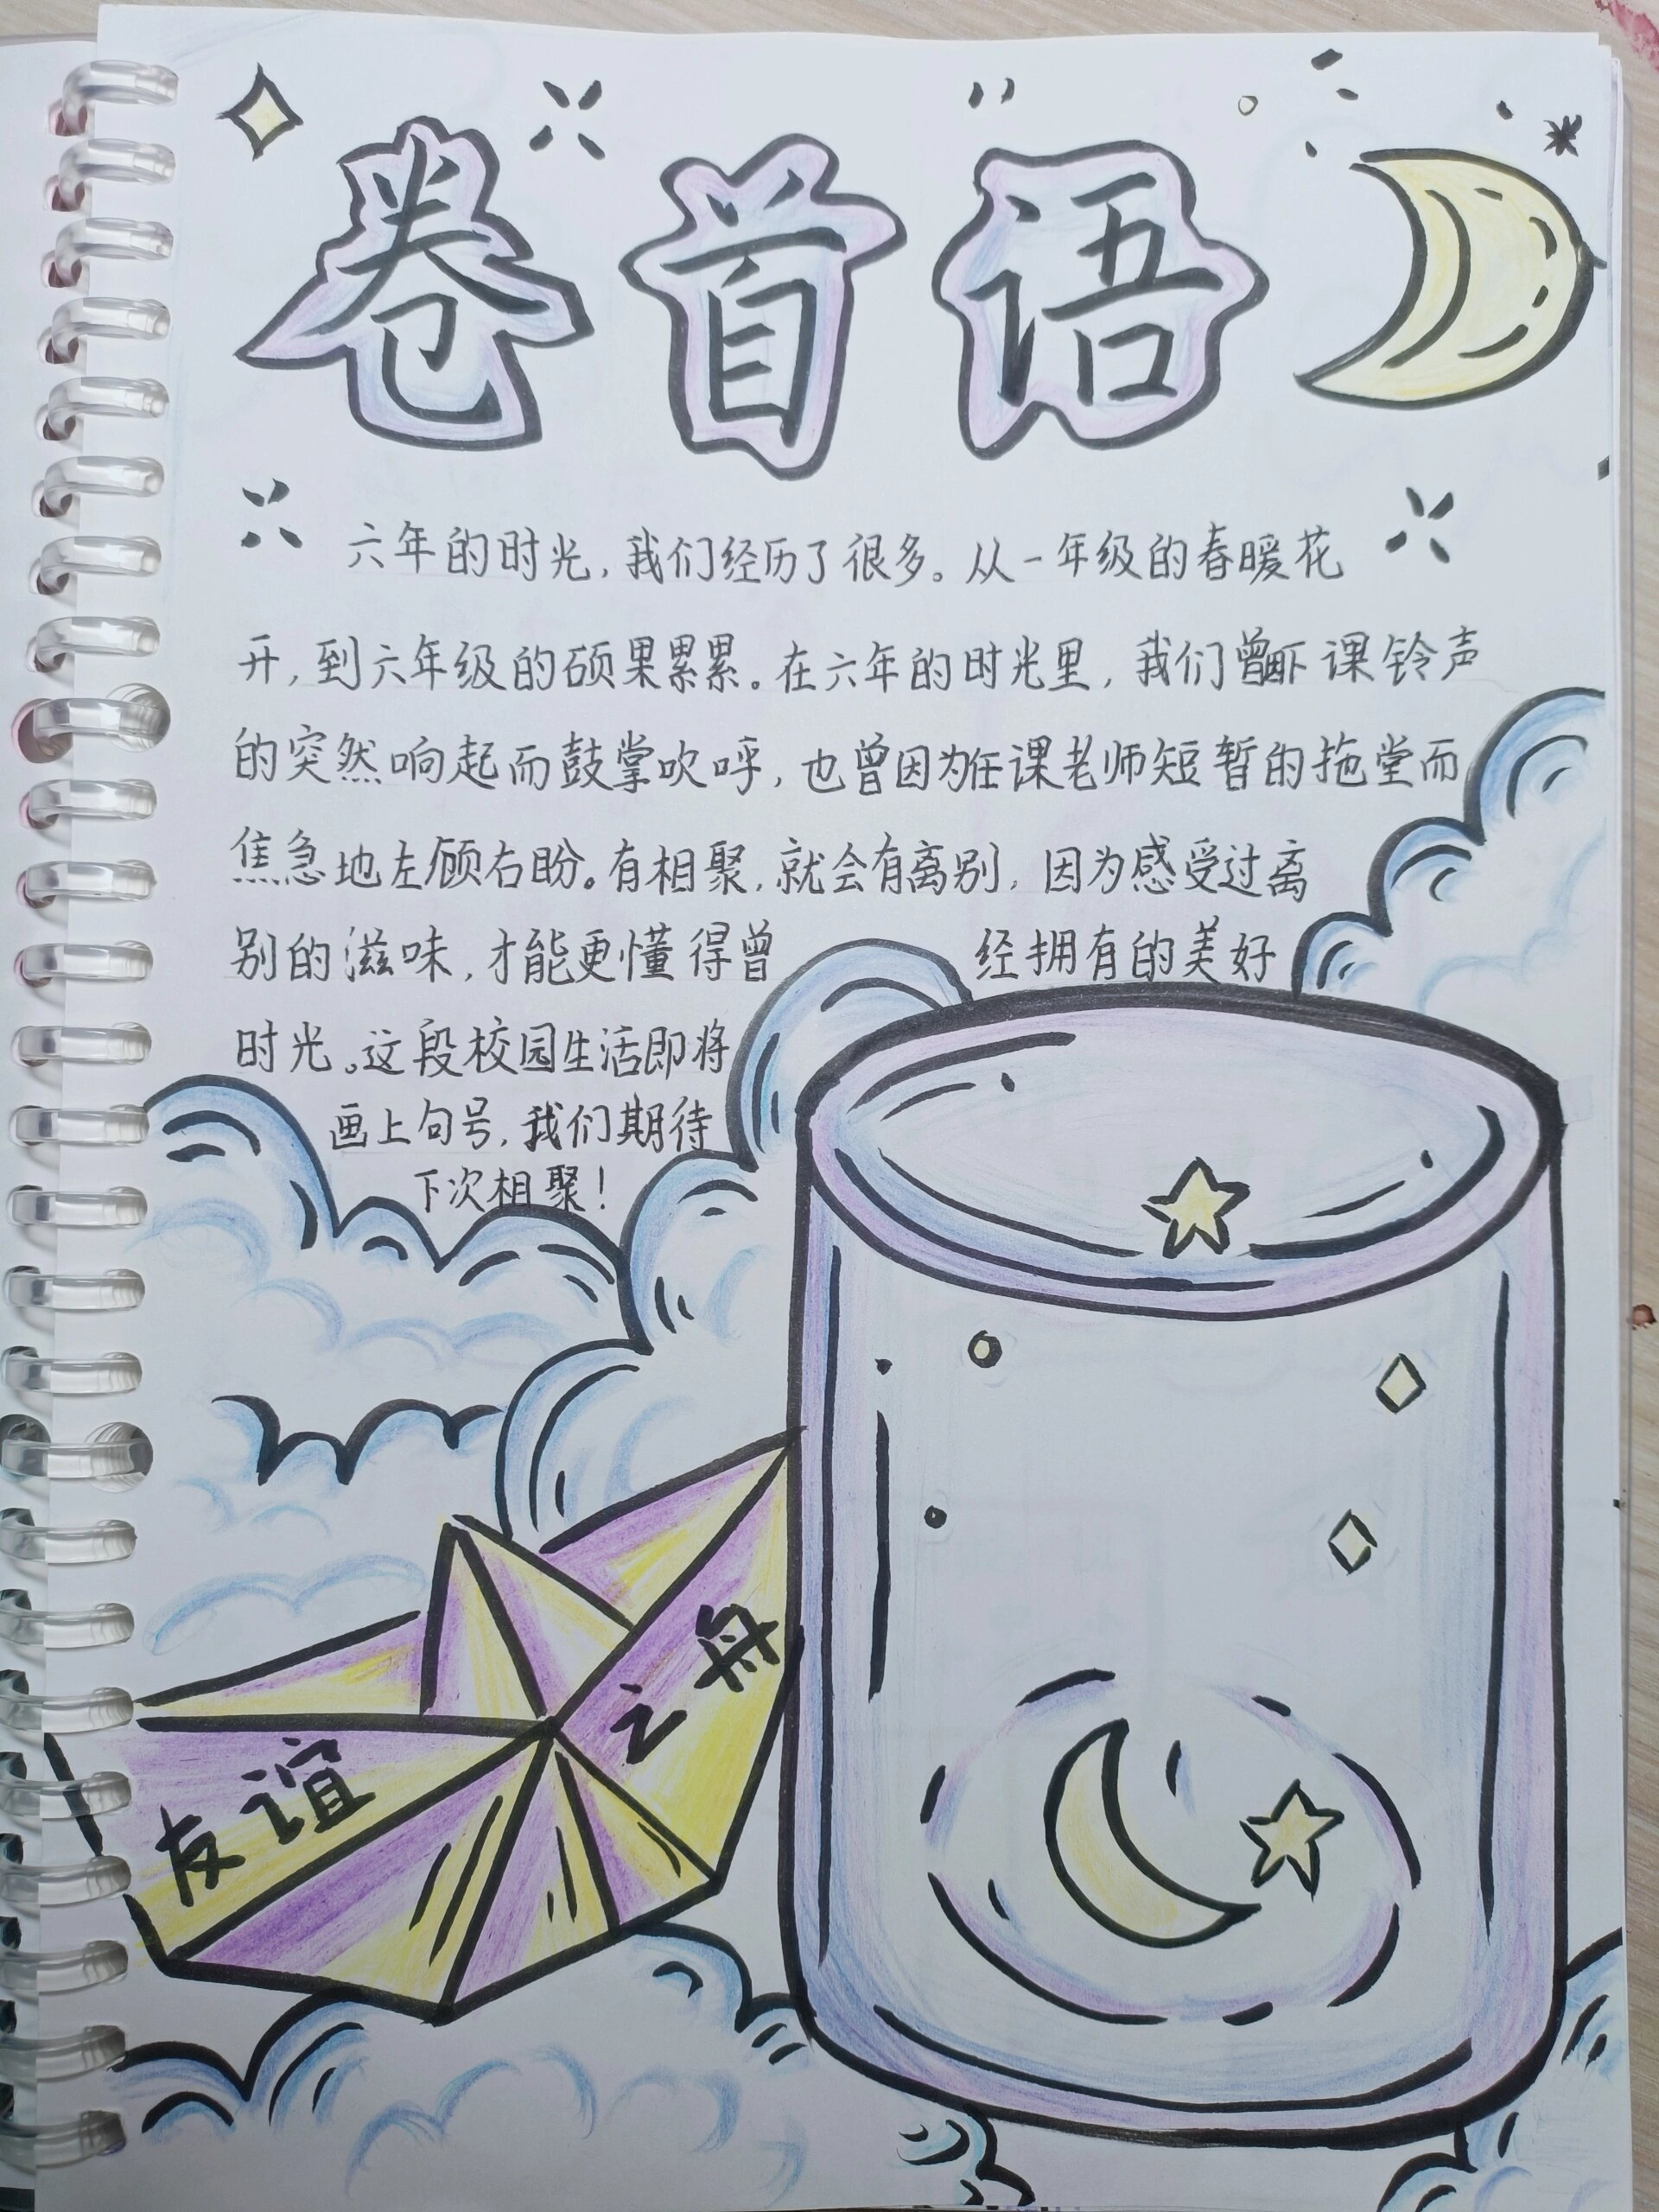 卷首语
六年的时光,我们经历了很多。从一年级的春暖花
开,到六年级的硕果累累。在六年的时光里,我们曾因下课铃声
的突然响起而鼓掌吹呼,也曾因为任课老师短暂的拖堂而
焦急地左顾右盼。有相聚,就会有离别,因为感受过离
别的滋味,才能更懂得曾经拥有的美好
时光。这段校园生活即将
画上句号,我们期待
下次相聚!
友谊之舟